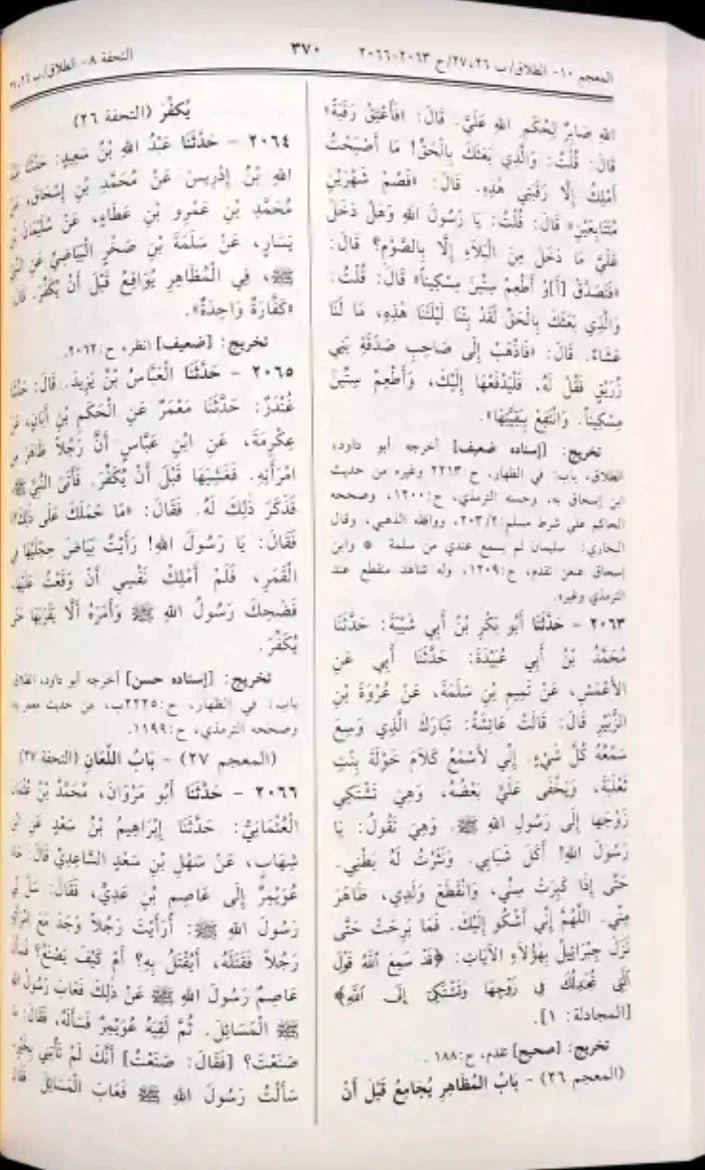 المعجم ١٠- الطلاق/ب ٢٦، ٢٧/ح ٢٠٦٣-٢٠٦٦
٣٧٠
التحفة ٨- الطلاق/ ب ٢٦،
اللهِ صَابِرٌ لِحُكْمِ اللهِ عَلَيَّ. قَالَ: «فَأَعْتِقْ رَقَبَةً»
قَالَ: قُلْتُ: وَالَّذِي بَعَثَكَ بِالْحَقِّ! مَا أَصْبَحْتُ
أَمْلِكُ إِلَّا رَقَبَتِي هٰذِهِ. قَالَ: «فَصُمْ شَهْرَيْنِ
مُتَتَابِعَيْنِ» قَالَ: قُلْتُ: يَا رَسُولَ اللهِ وَهَلْ دَخَلَ
عَلَيَّ مَا دَخَلَ مِنَ الْبَلَاءِ إِلَّا بِالصَّوْمِ؟ قَالَ:
«فَتَصَدَّقْ [أَ]وْ أَطْعِمْ سِتِّينَ مِسْكِيناً» قَالَ: قُلْتُ:
وَالَّذِي بَعَثَكَ بِالْحَقِّ لَقَدْ بِتْنَا لَيْلَتَنَا هٰذِهِ، مَا لَنَا
عَشَاءٌ. قَالَ: «فَاذْهَبْ إِلَى صَاحِبِ صَدَقَةِ بَنِي
زُرَيْقٍ فَقُلْ لَهُ. فَلْيَدْفَعْهَا إِلَيْكَ، وَأَطْعِمْ سِتِّينَ
مِسْكِيناً. وَانْتَفِعْ بِبَقِيَّتِهَا».
تخريج: [إسناده ضعيف] أخرجه أبو داود،
الطلاق، باب: في الظهار، ح:٢٢١٣ وغيره من حديث
ابن إسحاق به، وحسنه الترمذي، ح:١٢٠٠، وصححه
الحاكم على شرط مسلم:٢/ ٢٠٣، ووافقه الذهبي، وقال
البخاري: سليمان لم يسمع عندي من سلمة * وابن
إسحاق عنعن تقدم، ح:١٢٠٩، وله شاهد منقطع عند
الترمذي وغيره.
٢٠٦٣ - حَدَّثَنَا أَبُو بَكْرِ بْنُ أَبِي شَيْبَةَ: حَدَّثَنَا
مُحَمَّدُ بْنُ أَبِي عُبَيْدَةَ: حَدَّثَنَا أَبِي عَنِ
الأَعْمَشِ، عَنْ تَمِيمِ بْنِ سَلَمَةَ، عَنْ عُرْوَةَ بْنِ
الزُّبَيْرِ قَالَ: قَالَتْ عَائِشَةُ: تَبَارَكَ الَّذِي وَسِعَ
سَمْعُهُ كُلَّ شَيْءٍ. إِنِّي لأَسْمَعُ كَلَامَ خَوْلَةَ بِنْتِ
ثَعْلَبَةَ، وَيَخْفَى عَلَيَّ بَعْضُهُ، وَهِيَ تَشْتَكِي
زَوْجَهَا إِلَى رَسُولِ اللهِ ﷺ. وَهِيَ تَقُولُ: يَا
رَسُولَ اللهِ! أَكَلَ شَبَابِي. وَنَثَرْتُ لَهُ بَطْنِي.
حَتَّى إِذَا كَبِرَتْ سِنِّي، وَانْقَطَعَ وَلَدِي، ظَاهَرَ
مِنِّي. اللَّهُمَّ إِنِّي أَشْكُو إِلَيْكَ. فَمَا بَرِحَتْ حَتَّى
نَزَلَ جِبْرَائِيلُ بِهٰؤُلَاءِ الآيَاتِ: ﴿قَدْ سَمِعَ اللهُ قَوْلَ
الَّتِي تُجَٰدِلُكَ فِي زَوْجِهَا وَتَشْتَكِي إِلَى اللهِ﴾
[المجادلة: ١].
تخريج: [صحيح] تقدم، ح:١٨٨.
(المعجم ٢٦) - بَابُ الْمُظَاهِرِ يُجَامِعُ قَبْلَ أَنْ
يُكَفِّرَ (التحفة ٢٦)
٢٠٦٤ - حَدَّثَنَا عَبْدُ اللهِ بْنُ سَعِيدٍ: حَدَّثَنَا
اللهِ بْنُ إِدْرِيسَ عَنْ مُحَمَّدِ بْنِ إِسْحَاقَ، عَنْ
مُحَمَّدِ بْنِ عَمْرِو بْنِ عَطَاءٍ، عَنْ سُلَيْمَانَ بْنِ
يَسَارٍ، عَنْ سَلَمَةَ بْنِ صَخْرٍ الْبَيَاضِيِّ عَنِ النَّبِيِّ
ﷺ، فِي الْمُظَاهِرِ يُوَاقِعُ قَبْلَ أَنْ يُكَفِّرَ. قَالَ:
«كَفَّارَةٌ وَاحِدَةٌ».
تخريج: [ضعيف] انظر، ح:٢٠٦٢.
٢٠٦٥ - حَدَّثَنَا الْعَبَّاسُ بْنُ يَزِيدَ. قَالَ: حَدَّثَنَا
غُنْدَرٌ: حَدَّثَنَا مَعْمَرٌ عَنِ الْحَكَمِ بْنِ أَبَانٍ، عَنْ
عِكْرِمَةَ، عَنِ ابْنِ عَبَّاسٍ أَنَّ رَجُلاً ظَاهَرَ مِنِ
امْرَأَتِهِ. فَغَشِيَهَا قَبْلَ أَنْ يُكَفِّرَ. فَأَتَى النَّبِيَّ ﷺ
فَذَكَرَ ذٰلِكَ لَهُ. فَقَالَ: «مَا حَمَلَكَ عَلَى ذٰلِكَ؟»
فَقَالَ: يَا رَسُولَ اللهِ! رَأَيْتُ بَيَاضَ حِجْلَيْهَا فِي
الْقَمَرِ، فَلَمْ أَمْلِكْ نَفْسِي أَنْ وَقَعْتُ عَلَيْهَا.
فَضَحِكَ رَسُولُ اللهِ ﷺ وَأَمَرَهُ أَلَّا يَقْرَبَهَا حَتَّى
يُكَفِّرَ.
تخريج: [إسناده حسن] أخرجه أبو داود، الطلاق،
باب: في الظهار، ح:٢٢٢٥ب، من حديث معمر به،
وصححه الترمذي، ح:١١٩٩.
(المعجم ٢٧) - بَابُ اللِّعَانِ (التحفة ٢٧)
٢٠٦٦ - حَدَّثَنَا أَبُو مَرْوَانَ، مُحَمَّدُ بْنُ عُثْمَانَ
الْعُثْمَانِيُّ: حَدَّثَنَا إِبْرَاهِيمُ بْنُ سَعْدٍ عَنِ ابْنِ
شِهَابٍ، عَنْ سَهْلِ بْنِ سَعْدٍ السَّاعِدِيِّ قَالَ:
عُوَيْمِرٌ إِلَى عَاصِمِ بْنِ عَدِيٍّ، فَقَالَ: سَلْ لِي
رَسُولَ اللهِ ﷺ: أَرَأَيْتَ رَجُلاً وَجَدَ مَعَ امْرَأَتِهِ
رَجُلاً فَقَتَلَهُ، أَيُقْتَلُ بِهِ؟ أَمْ كَيْفَ يَصْنَعُ؟ فَسَأَلَ
عَاصِمٌ رَسُولَ اللهِ ﷺ عَنْ ذٰلِكَ فَعَابَ رَسُولُ اللهِ
ﷺ الْمَسَائِلَ. ثُمَّ لَقِيَهُ عُوَيْمِرٌ فَسَأَلَهُ، فَقَالَ: مَا
صَنَعْتَ؟ [فَقَالَ: صَنَعْتُ] أَنَّكَ لَمْ تَأْتِنِي بِخَيْرٍ،
سَأَلْتُ رَسُولَ اللهِ ﷺ فَعَابَ الْمَسَائِلَ قَالَ